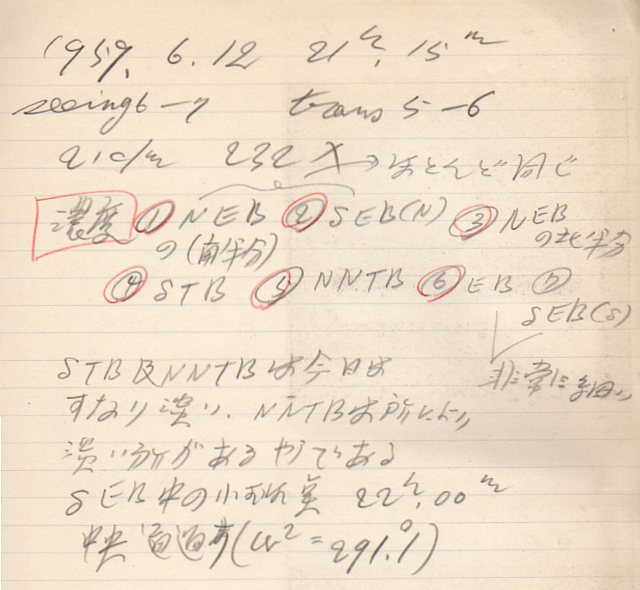 1959. 6. 12 21h. 15m
seeing 6-7 trans 5-6
21c/m 232X→ほとんど同じ
濃度 ① NEB ② SEB(N) ③ NEB
の(南半分) の北半分
④ STB ⑤ NNTB ⑥ EB ⑦
SEB(S)
非常に細い
STB及NNTBは今日は
かなり濃い、NNTBは所により
濃い所があるようである
SEB中の小斑点 22h.00m
中央通過(ω²=291.°1)